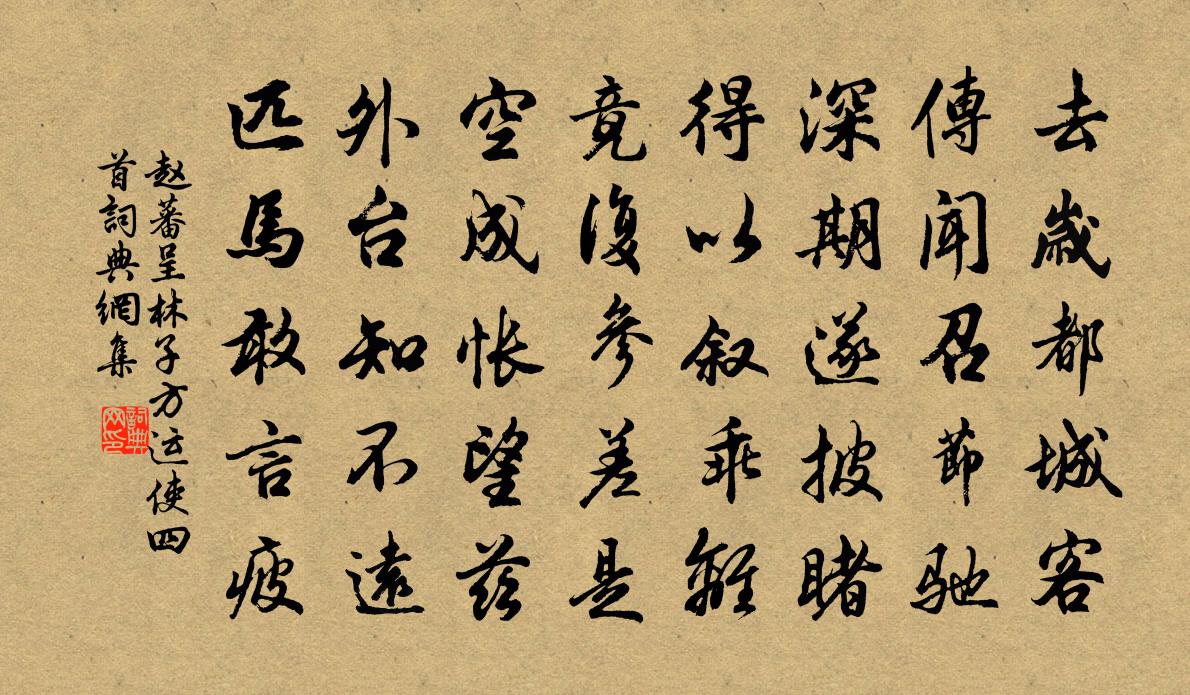 去歲都城客
傳聞召節馳
深期遂披睹
得以叙乖離
竟復參差是
空成悵望茲
外台知不遠
匹馬敢言疲
赵蕃呈林子方运使四
首詞典網集
詞典
网印